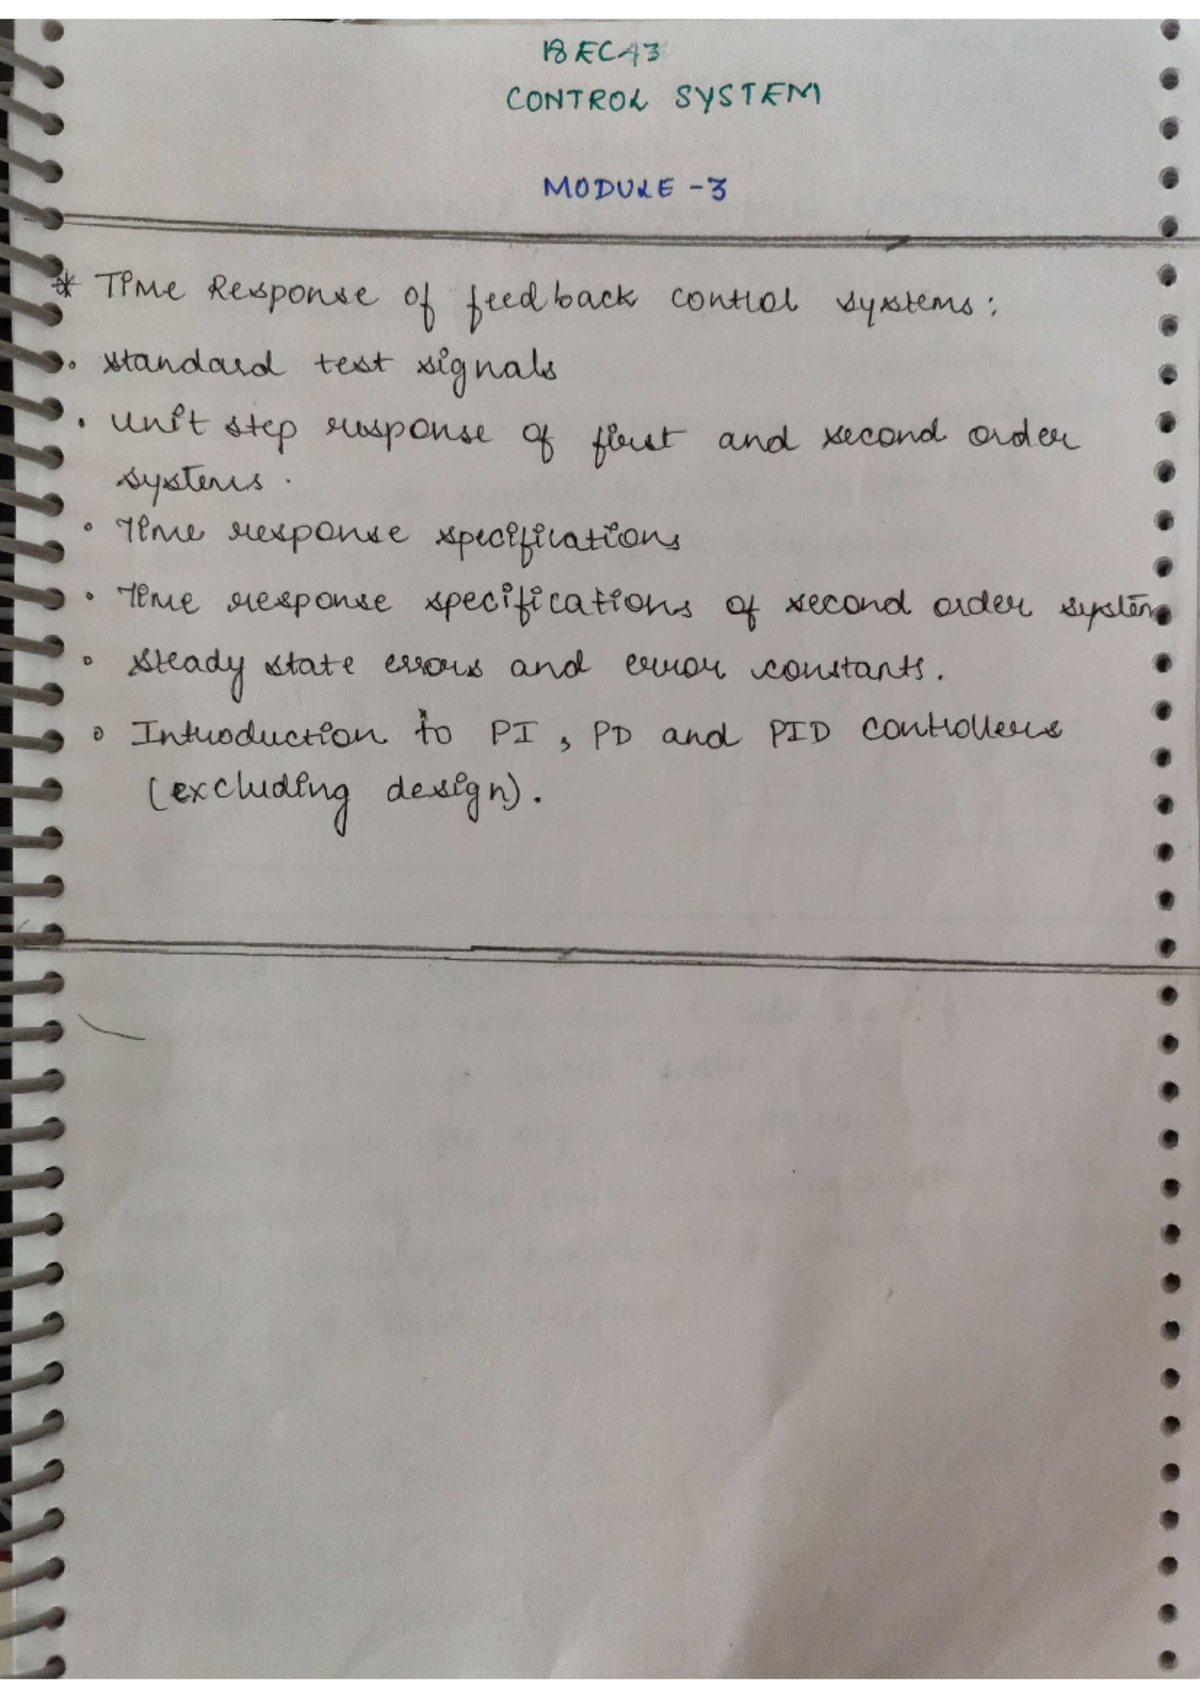 18EC43
CONTROL SYSTEM
MODULE -3
* Time Response of feedback control systems:
• standard test signals
• unit step response of first and second order
systems.
• Time response specifications
• Time response specifications of second order system
• steady state errors and error constants.
• Introduction to PI, PD and PID controllers
(excluding design).